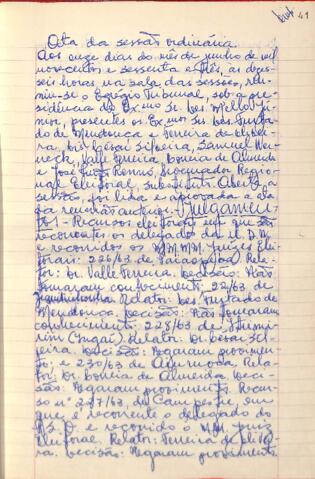 41
Ata da sessão ordinária.
Aos onze dias do mês de junho de mil
novecentos e sessenta e três, às dezes-
seis horas na sala das sessões, reu-
niu-se o Egrégio Tribunal, sob a pre-
sidência do Ex.mo Sr. Des. Mello Jú-
nior, presentes os Ex.mo Sr. Des. Furtado
de Mendonça e Ferreira de Olivei-
ra, Drs. César Silveira, Samuel Wer-
neck, Valle Ferreira, Correia de Almeida
e José Procurador Regio-
nal Eleitoral, substituto. Aberta a
sessão, foi lida e aprovada a ata
da reunião anterior. Julgamen-
tos - Recursos eleitorais em que são
recorrentes os delegados da U.D.N.
e recorridos os MM.MM. Juízes Elei-
torais: 226/63 de Rela-
tor: Dr. Valle Ferreira. Decisão: Não
tomaram conhecimento; 22/63 de
Relator: Des. Furtado de
Mendonça. Decisão: Não tomaram
conhecimento; 228/63 de
mirim Relator: Dr. César Sil-
veira. Decisão: Negaram provimen-
to; e 230/63 de Rela-
tor: Dr. Correia de Almeida. Deci-
são: Negaram provimento. Recur-
so nº 227/63, de Campestre, em
que é recorrente o delegado do
P.S.D. e recorrido o MM. Juiz
Eleitoral. Relator: Ferreira de Olivei-
ra. Decisão: Negaram provimento